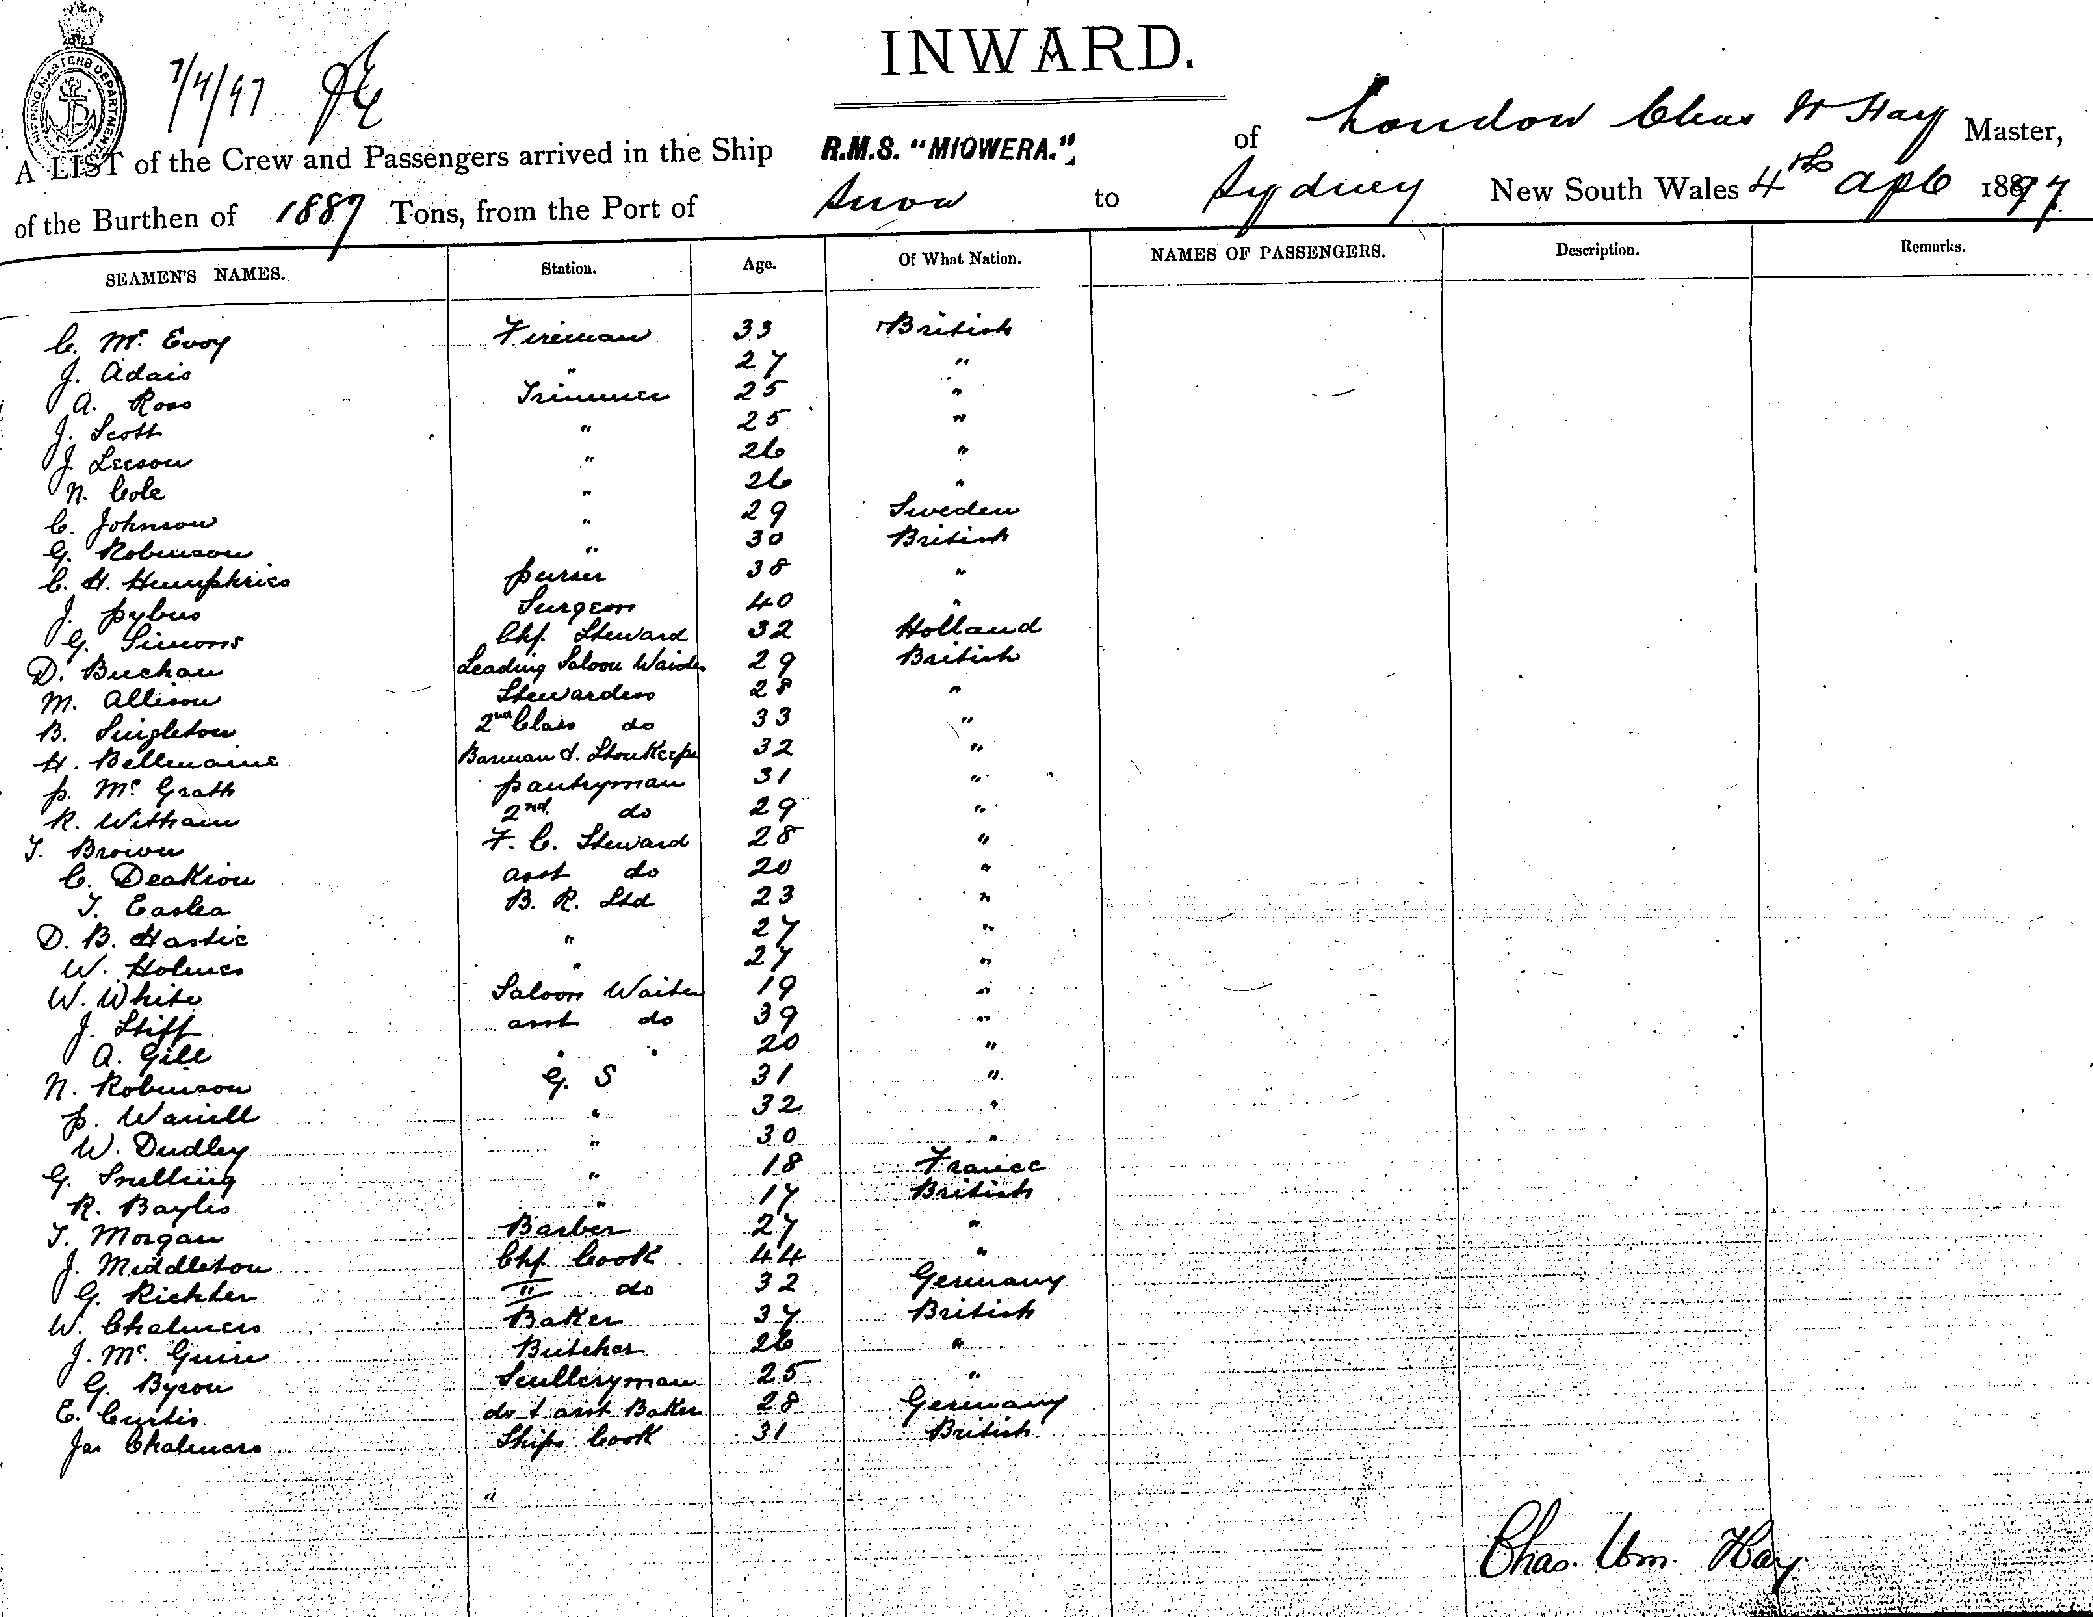 INWARD.
SHIPPING MASTERS DEPARTMENT
7/4/97
A LIST of the Crew and Passengers arrived in the Ship R.M.S. "MIOWERA." of London Chas W Hay Master,
of the Burthen of 1887 Tons, from the Port of Suva to Sydney New South Wales 4th Apl 1897
SEAMEN'S NAMES. Station. Age. Of What Nation. NAMES OF PASSENGERS. Description. Remarks.
C. Mc Evoy Fireman 33 British
J. Adais " 27 "
A. Ross Trimmer 25 "
J. Scott " 25 "
J. Leeson " 26 "
N. Cole " 26 "
C. Johnson " 29 Sweden
G. Robinson " 30 British
C. H. Humphries purser 38 "
J. pybus Surgeon 40 "
G. Simons Chf. Steward 32 Holland
D. Buchan Leading Saloon Waiter 29 British
M. Allison Stewardess 28 "
B. Singleton 2nd Class do 33 "
H. Bellmaine Barman & StoreKeeper 32 "
p. Mc Grath pantryman 31 "
R. Witham 2nd do 29 "
T. Brown F. C. Steward 28 "
C. Deakion asst do 20 "
T. Easlea B. R. Std 23 "
D. B. Hastie " 27 "
W. Holmes " 27 "
W. White Saloon Waiter 19 "
J. Stiff asst do 39 "
A. Gill " " 20 "
N. Robinson G. S 31 "
p. Warrell " 32 "
W. Dudley " 30 "
G. Snelling " 18 France
R. Baylis " 17 British
T. Morgan Barber 27 "
J. Middleton Chf. Cook 44 "
G. Richter II do 32 Germany
W. Chalmers Baker 37 British
J. Mc. Guire Butcher 26 "
G. Byron Sculleryman 25 "
E. Curtis do & asst Baker 28 Germany
Jas Chalmers Ships Cook 31 British
"
Chas. Wm. Hay